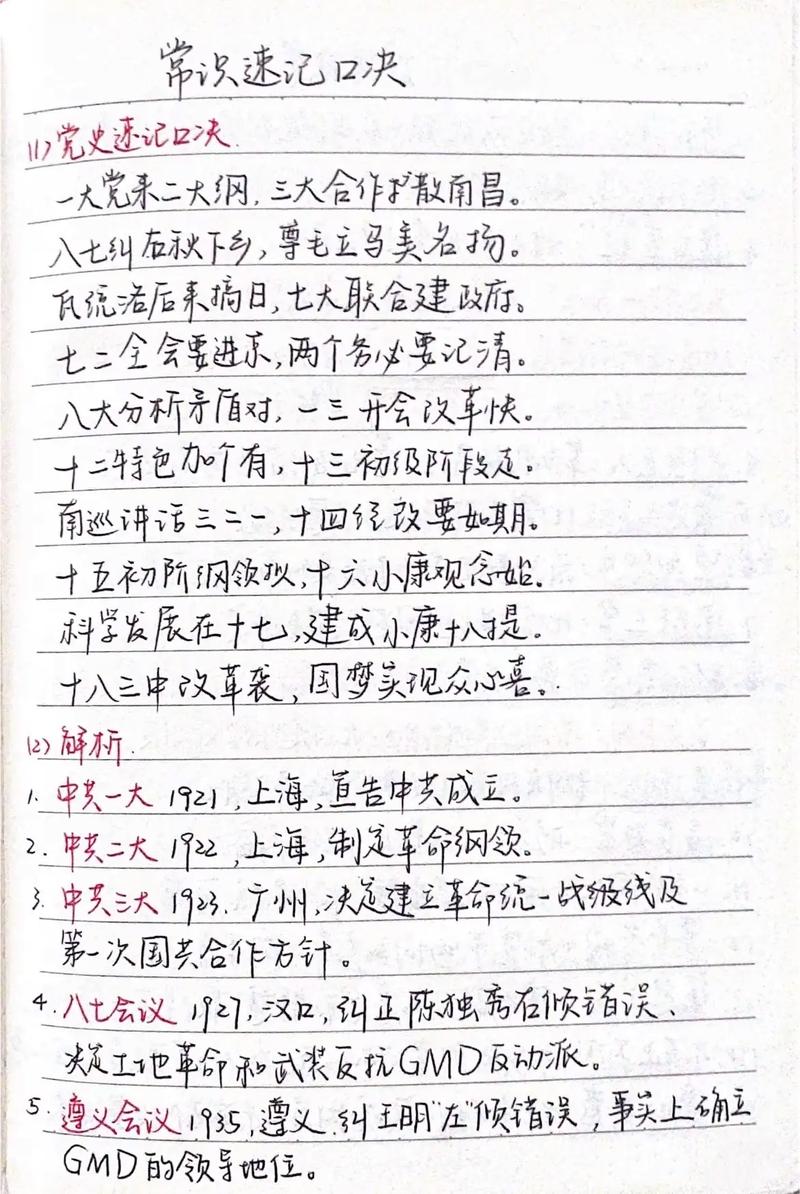 常识速记口决
(1)党史速记口决.
一大党来二大纲，三大合作才散南昌。
八七纠右秋下乡，尊毛立马美名扬。
瓦统洛后来摘日，七大联合建政府。
七二全会要进京，两个务必要记清。
八大分析矛盾对，一三开会改革快。
十二特色加个有，十三初级阶段走。
南巡讲话三二一，十四经改要如期。
十五初阶纲领拟，十六小康观念始。
科学发展在十七，建成小康十八提。
十八三中改革袭，国梦实现众心喜。
(2)解析.
1. 中共一大 1921，上海，宣告中共成立。
2. 中共二大 1922，上海，制定革命纲领。
3. 中共三大 1923. 广州，决定建立革命统一战级线及
第一次国共合作方针。
4. 八七会议 1927，汉口，纠正陈独秀右倾错误、
决定土地革命和武装反抗GMD反动派。
5. 遵义会议 1935，遵义.纠王明"左"倾错误，事实上确立
GMD的领导地位。